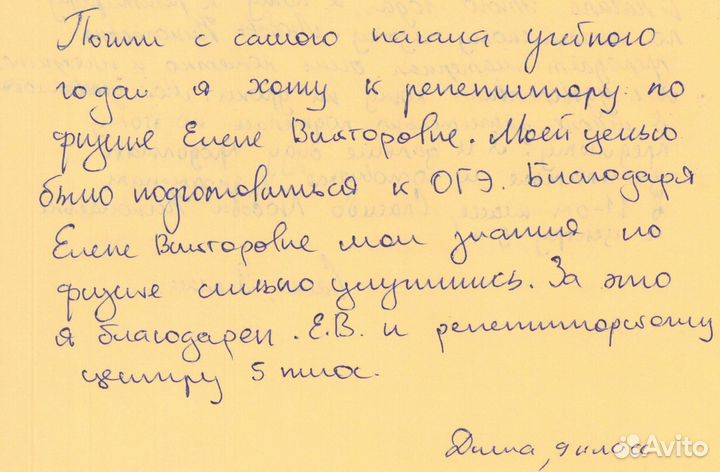 Почти с самого начала учебного
года я хожу к репетитору по
физике Елене Викторовне. Моей целью
было подготовиться к ОГЭ. Благодаря
Елене Викторовне мои знания по
физике сильно улучшились. За это
я благодарен. Е.В. и репетиторскому
центру 5 плюс.
Дима, 9 класс
Avito